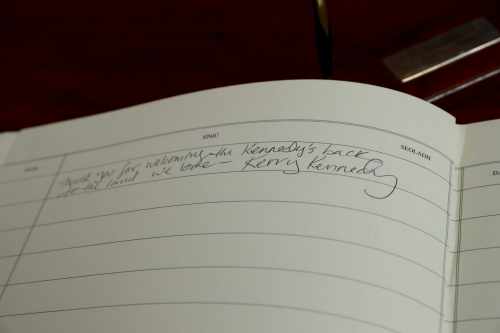 SEOLADH
Thank you for welcoming the Kennedy's back
to the land we love – Kerry Kennedy